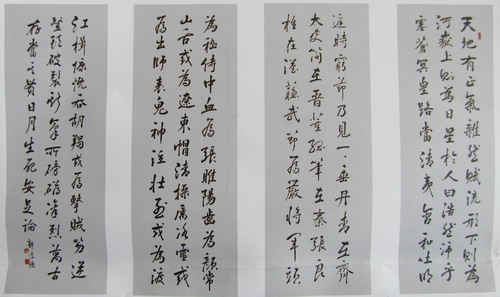 天地有正氣雜然賦流形下則為
河嶽上則為日星於人曰浩然沛乎
塞蒼冥皇路當清夷含和吐明
庭時窮節乃見一一垂丹青在齊
太史簡在晉董狐筆在秦張良
椎在漢蘇武節為嚴將軍頭
為嵇侍中血為張睢陽齒為顏常
山舌或為遼東帽清操厲冰雪或
為出師表鬼神泣壯烈或為渡
江楫慷慨吞胡羯或為擊賊笏逆
豎頭破裂是氣所磅礴凜烈萬古
存當其貫日月生死安足論